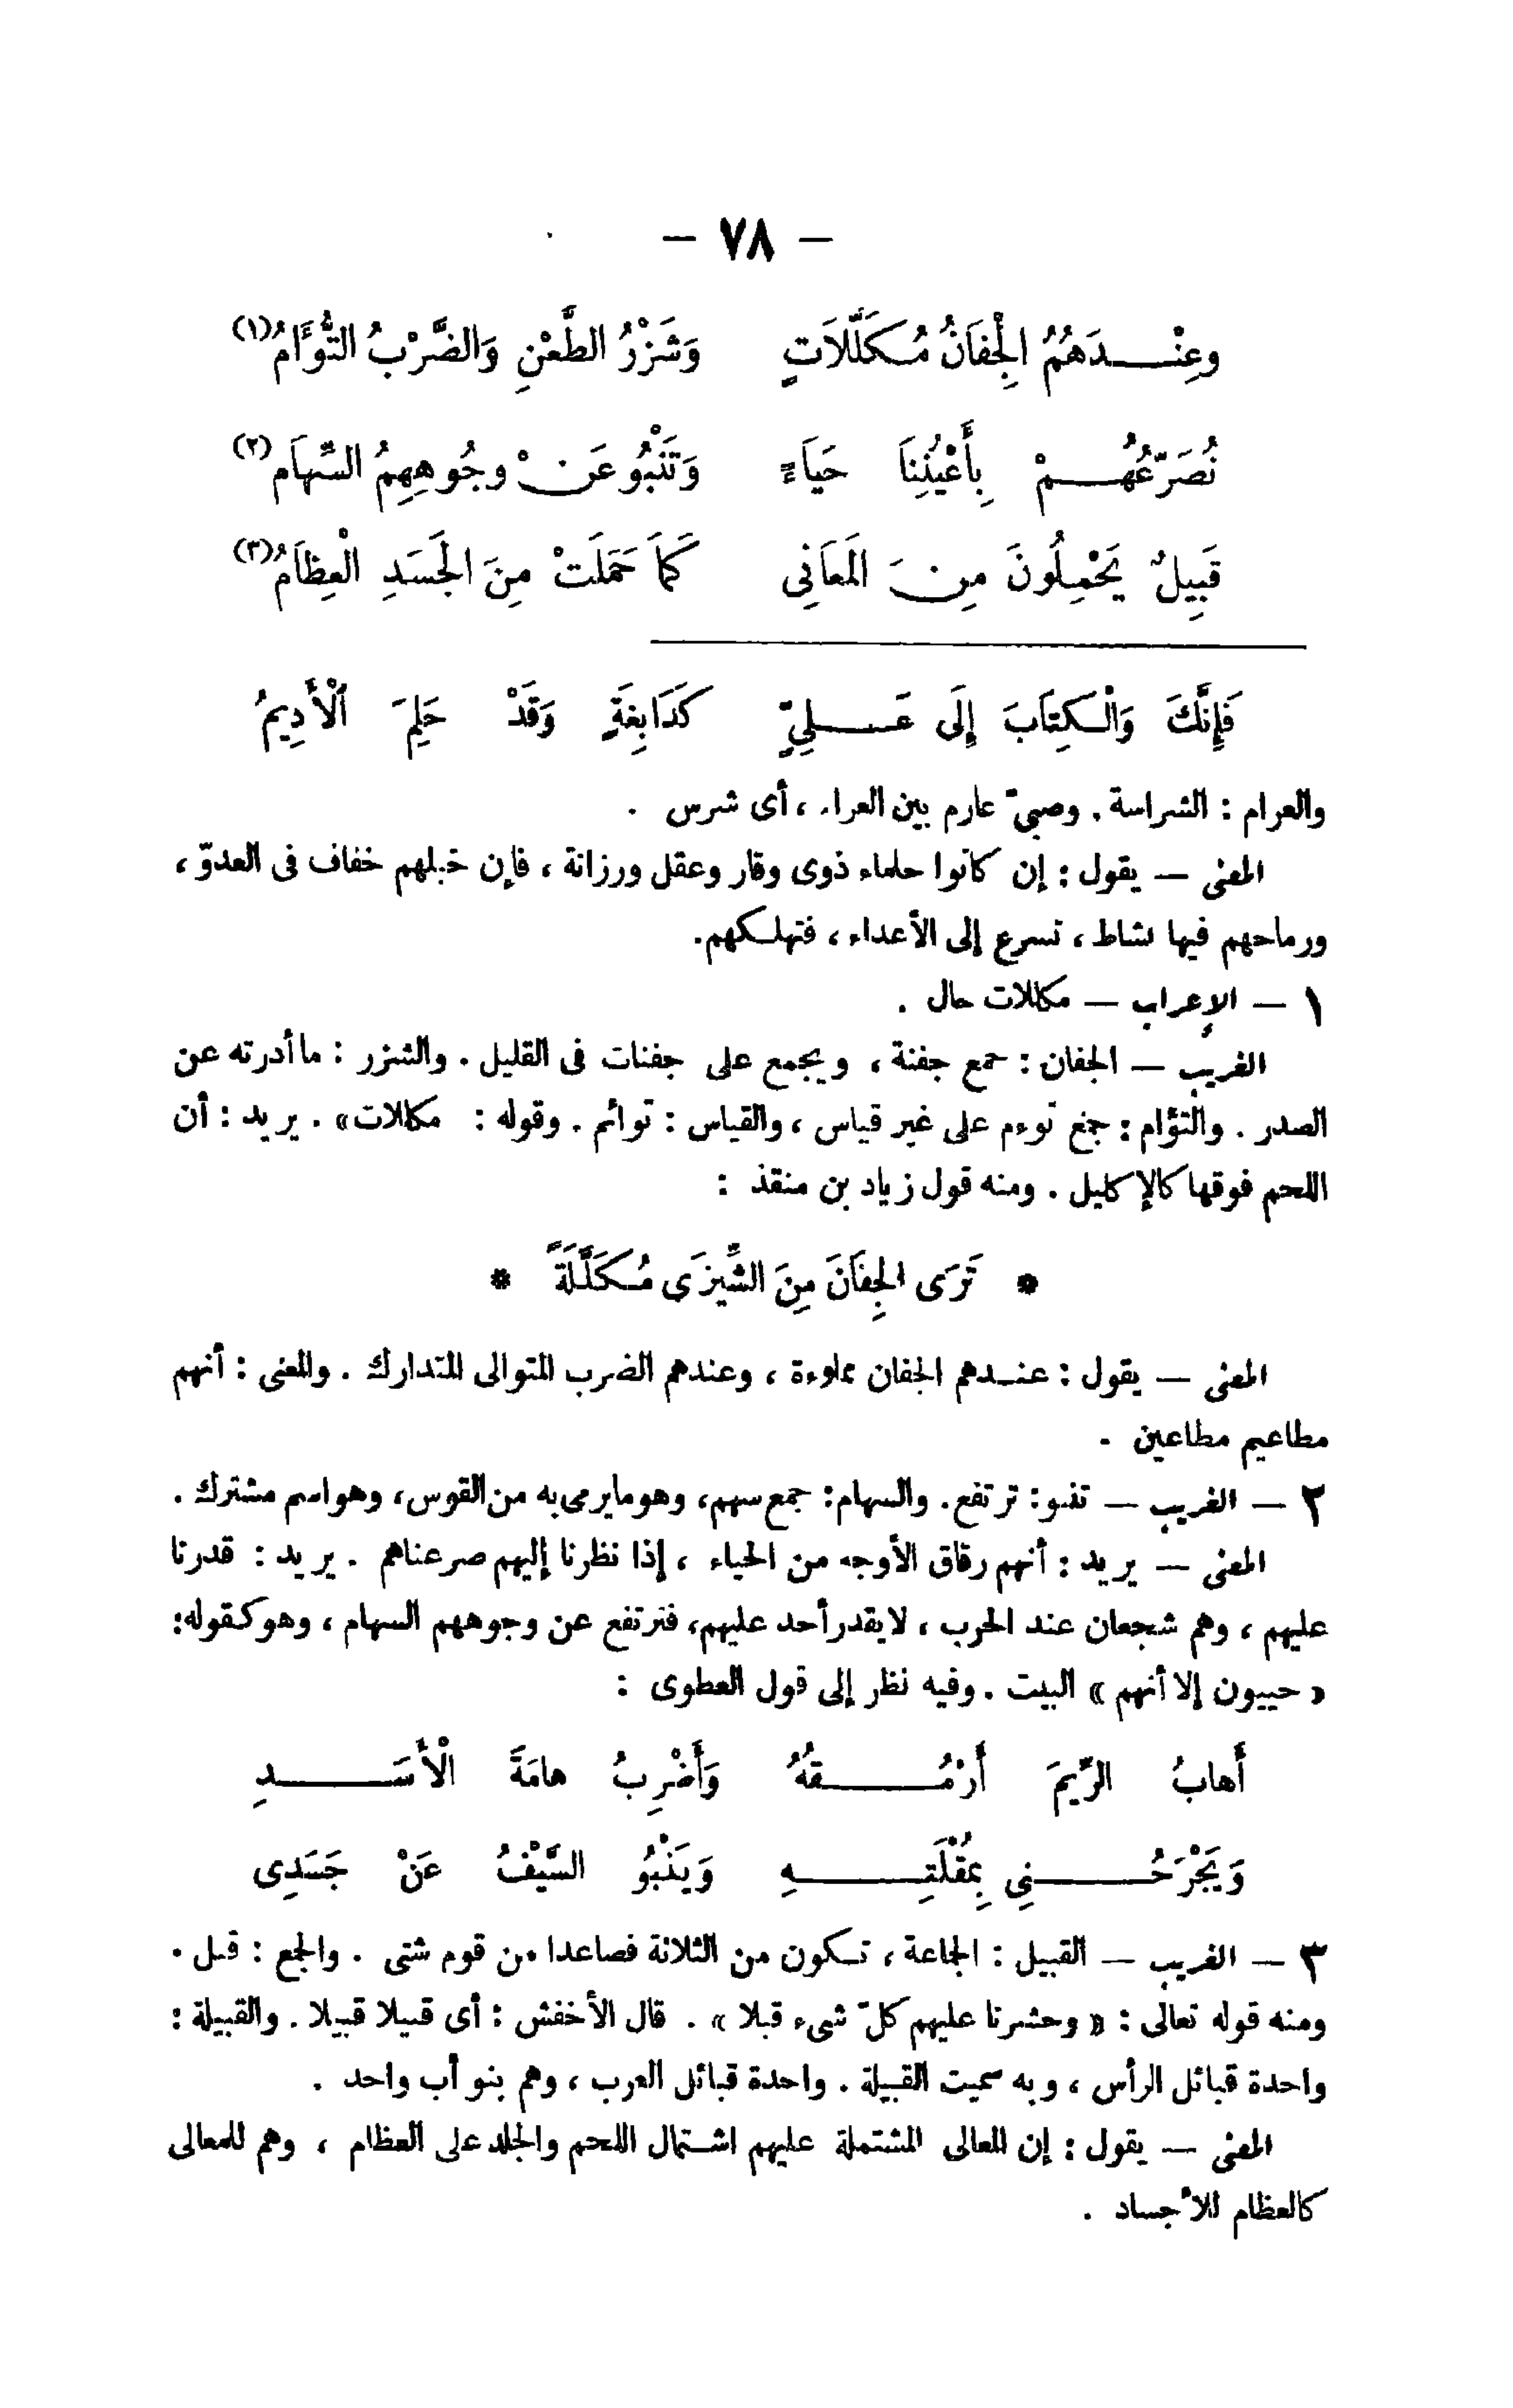 — ٧٨ —
وعِنْـدَهُمُ الْجِفَانُ مُكَلَّلَاتٍ وَشَزْرُ الطَّعْنِ وَالضَّرْبُ التُّؤَامُ(١)
نُصَرِّعُهُـمْ بِأَعْيُنِنَا حَيَاءً وَتَنْبُو عَنْ وجُوهِهِمُ السِّهَام(٢)
قَبِيلٌ يَحْمِلُونَ مِنَ المَعَانِى كَمَا حَمَلَتْ مِنَ الجَسَدِ الْعِظَامُ(٣)
فَإِنَّكَ وَالْكِتَابَ إِلَى عَـلِيٍّ كَدَابِغَةٍ وَقَدْ حَلِمَ ٱلْأَدِيمُ
والعرام : الشراسة . وصبىّ عارم بين العرام ، أى شرس .
المعنى — يقول : إن كانوا حلماء ذوى وقار وعقل ورزانة ، فإن خيلهم خفاف فى العدوّ ،
ورماحهم فيها نشاط ، تسرع إلى الأعداء ، فتهلكهم.
١ — الإعراب — مكللات حال .
الغريب — الجفان : جمع جفنة ، ويجمع على جفنات فى القليل . والشزر : ما أدرته عن
الصدر . والتؤام : جمع توءم على غير قياس ، والقياس : توائم . وقوله : مكللات» . يريد : أن
اللحم فوقها كالإكليل . ومنه قول زياد بن منقذ :
* تَرَى الجِفَانَ مِنَ الشِّيزَى مُكَلَّلَةً *
المعنى — يقول : عنـدهم الجفان مملوءة ، وعندهم الضرب المتوالى المتدارك . والمعنى : أنهم
مطاعيم مطاعين .
٢ — الغريب — تنبو: ترتفع. والسهام: جمع سهم، وهو مايرمى به من القوس، وهو اسم مشترك .
المعنى — يريد : أنهم رقاق الأوجه من الحياء ، إذا نظرنا إليهم صرعناهم . يريد : قدرنا
عليهم ، وهم شجعان عند الحرب ، لايقدر أحد عليهم، فترتفع عن وجوههم السهام ، وهو كقوله:
« حييون إلا أنهم » البيت . وفيه نظر إلى قول العطوى :
أَهابُ الرِّيمَ أَرْمُـقُهُ وَأَضْرِبُ هامَةَ الْأَسَـدِ
وَيَجْرَحُـنِى بِمُقْلَتِـهِ وَيَنْبُو السَّيْفُ عَنْ جَسَدِى
٣ — الغريب — القبيل : الجماعة ، تكون من الثلاثة فصاعدا من قوم شتى . والجمع : قبل .
ومنه قوله تعالى : « وحشرنا عليهم كلّ شىء قبلا » . قال الأخفش : أى قبيلا قبيلا . والقبيلة :
واحدة قبائل الرأس ، وبه سميت القبيلة . واحدة قبائل العرب ، وهم بنو أب واحد .
المعنى — يقول : إن المعالى المشتملة عليهم اشتمال اللحم والجلد على العظام ، وهم للمعالى
كالعظام للأجساد .